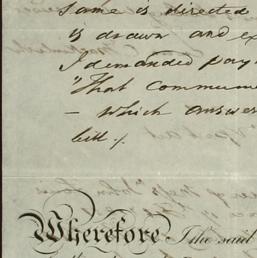 Same is directed
is drawn and ex
I demanded pay
"That Commun
- which answer
bill.
Wherefore I the said